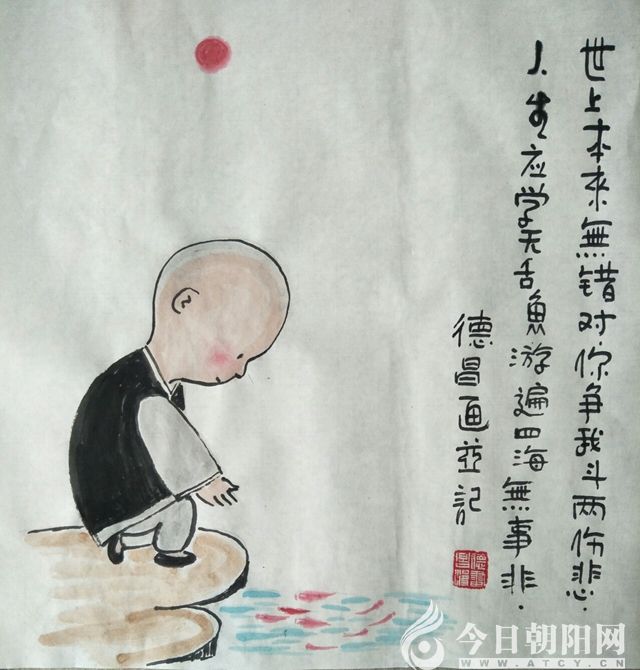 世上本來無错对你争我斗两伤悲.
人生应学无舌魚游遍四海無事非.
德昌画並記
今日朝阳网
WWW.ATJZY.CN